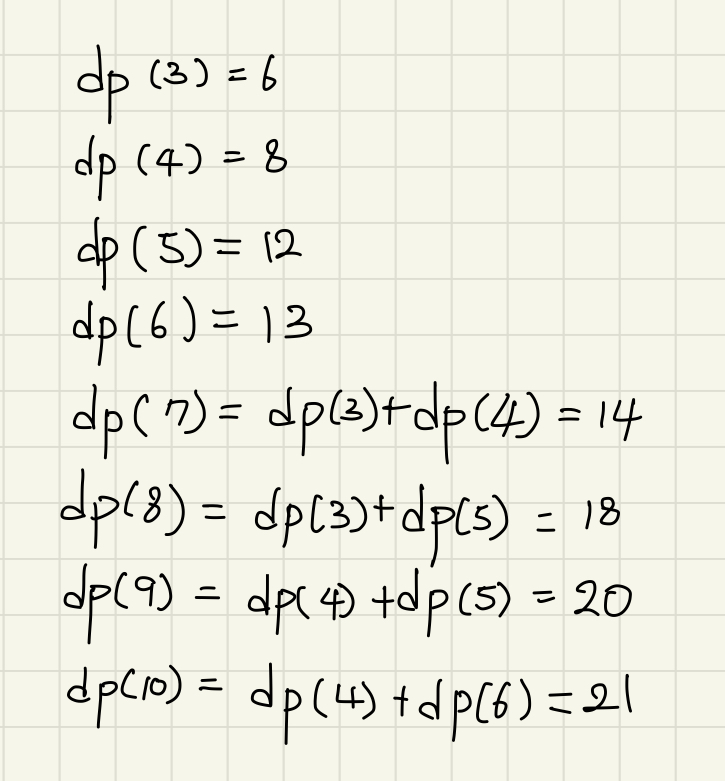 dp (3) = 6
dp (4) = 8
dp(5) = 12
dp(6) = 13
dp(7) = dp(3)+dp(4) = 14
dp(8) = dp(3)+dp(5) = 18
dp(9) = dp(4)+dp(5) = 20
dp(10) = dp(4)+dp(6) = 21